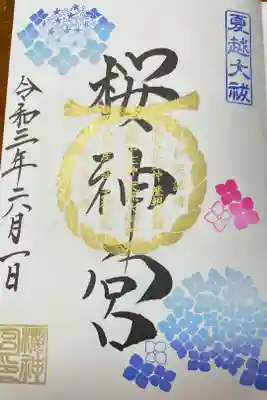 夏越大祓
桜神宮
令和三年六月一日
桜神
宮印